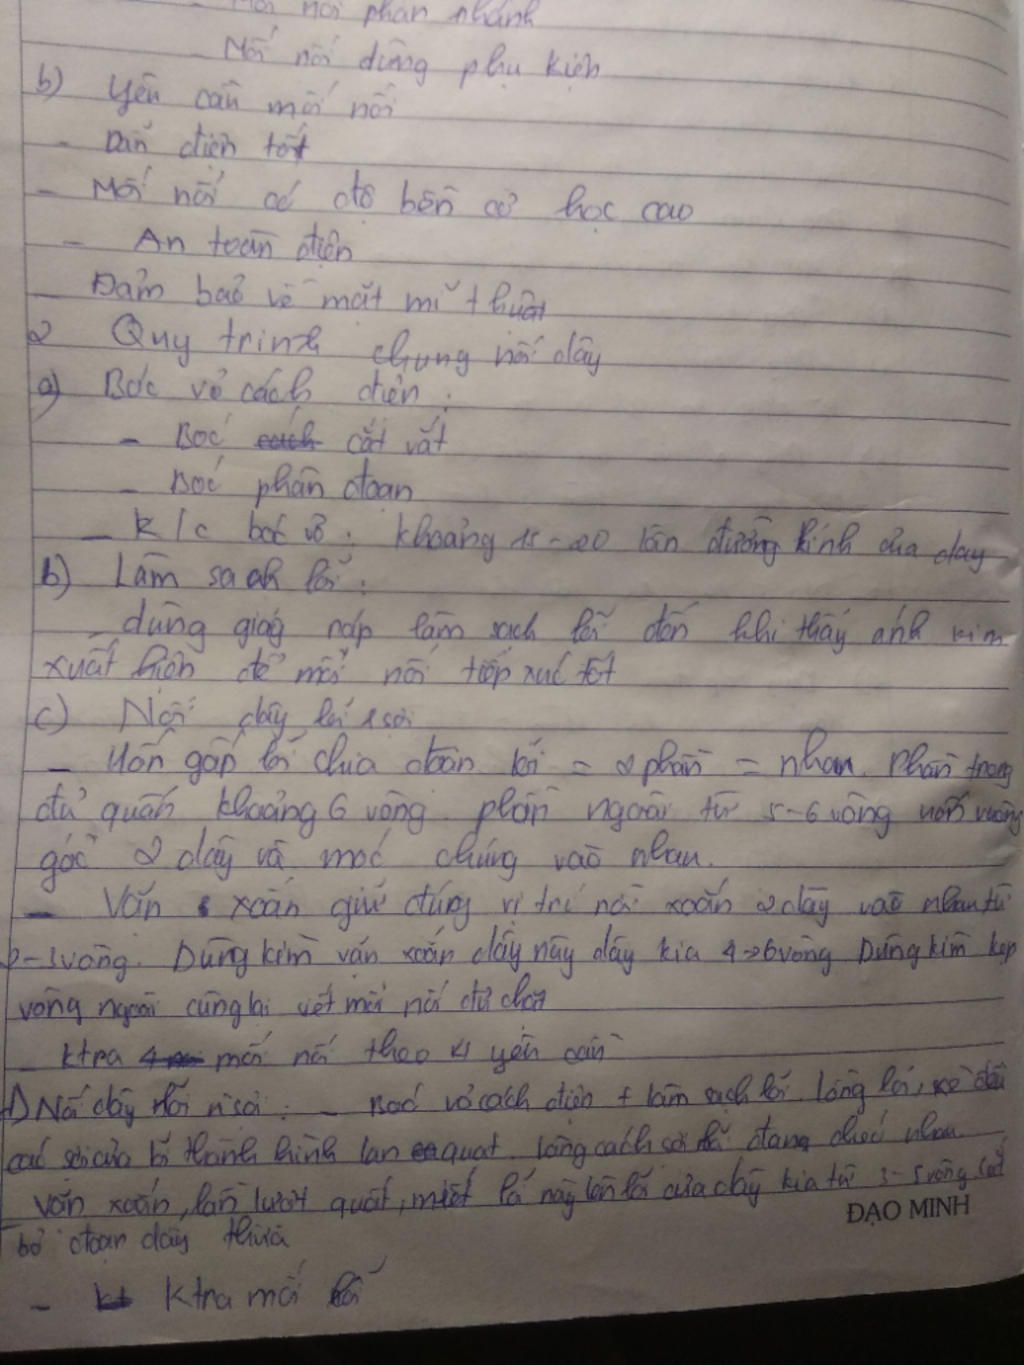 Mối nối phân nhánh
- Mối nối dùng phụ kiện
b) Yêu cầu mối nối
- Dẫn điện tốt
- Mối nối có độ bền cơ học cao
- An toàn điện
- Đảm bảo về mặt mĩ thuật
2 Quy trình chung nối dây
a) Bóc vỏ cách điện :
- Bóc cắt vát
- Bóc phân đoạn
- K/c bóc vỏ : khoảng 15-20 lần đường kính của dây
b) Làm sạch lõi :
- dùng giấy ráp làm sạch lõi đến khi thấy ánh kim
xuất hiện để mối nối tiếp xúc tốt
c) Nối dây lõi 1 sợi
- Uốn gấp lõi chia đoạn lõi = 2 phần = nhau. Phần trong
đủ quấn khoảng 6 vòng phần ngoài từ 5-6 vòng uốn vuông
góc 2 dây và móc chúng vào nhau.
- Vặn xoắn giữ đúng vị trí nối xoắn 2 dây vào nhau từ
2-3 vòng. Dùng kìm vặn xoắn dây này dây kia 4->6 vòng Dùng kìm kẹp
vòng ngoài cùng lại vết mối nối đủ chặt
- Ktra mối nối theo 4 yêu cầu
d) Nối dây lõi n sợi : - Bóc vỏ cách điện + làm sạch lõi. Lồng lõi, xòe đều
các sợi của lõi thành hình lan quạt. lồng các sợi đan chéo nhau
Vặn xoắn, lần lượt quất, miết lá này lên lõi của dây kia từ 3-5 vòng. cắt
bỏ đoạn dây thừa
- Ktra mối
ĐẠO MINH